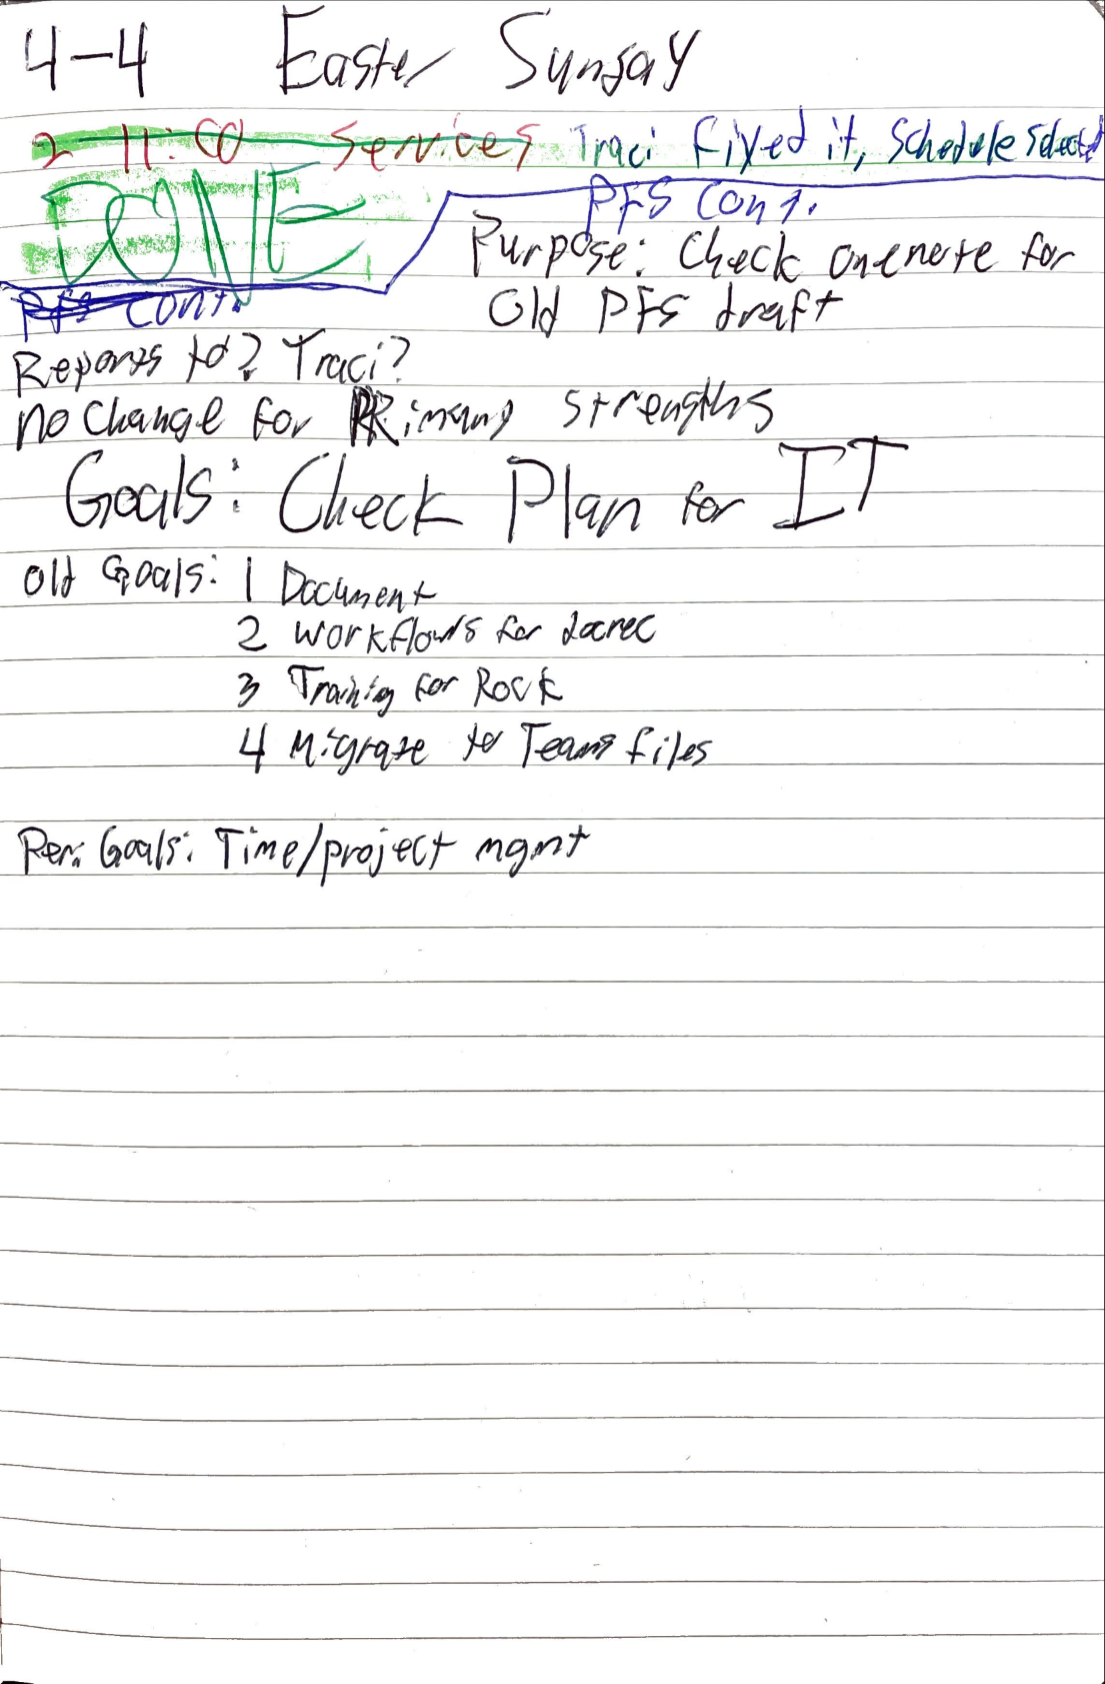 4-4 Easter Sunday
2 11:00 Services Traci fixed it, Schedule
DONE
PFS Cont.
Purpose: Check onenote for
Old PFS draft
PFS Cont.
Reports to? Traci?
No Change for strengths
Goals: Check Plan for IT
Old Goals: 1 Document
2 Workflows for
3 Training for Rock
4 Migrate to Teams files
Per. Goals: Time/project mgmt